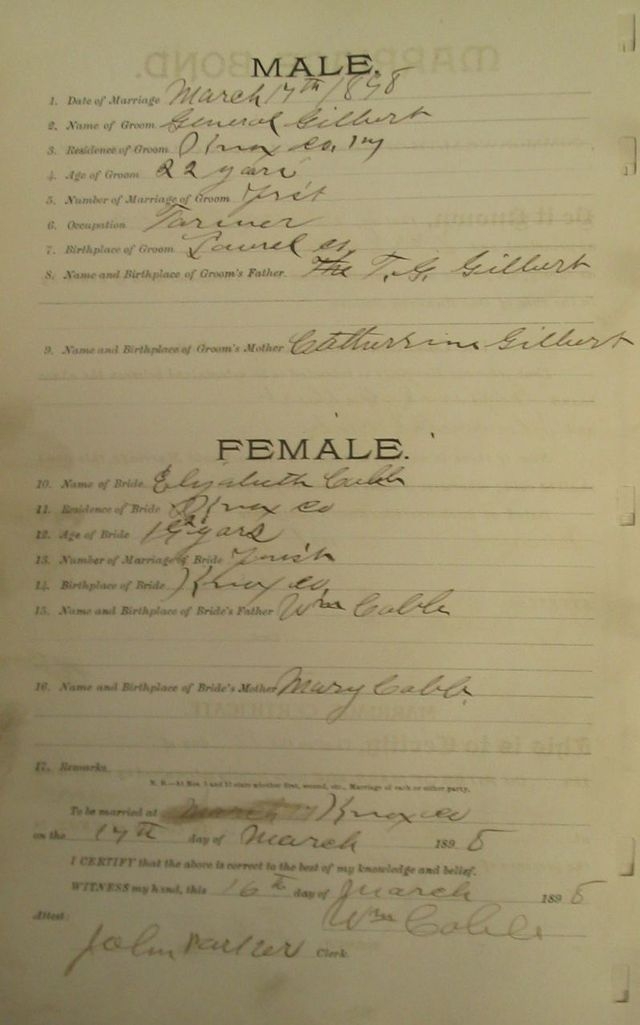 MALE.
1. Date of Marriage March 17th 1898
2. Name of Groom General Gilbert
3. Residence of Groom Knox co, Ky
4. Age of Groom 22 years
5. Number of Marriage of Groom First
6. Occupation Farmer
7. Birthplace of Groom Laurel co,
8. Name and Birthplace of Groom's Father T. G. Gilbert
9. Name and Birthplace of Groom's Mother Catherine Gilbert
FEMALE.
10. Name of Bride Elizabeth Cobb
11. Residence of Bride Knox co
12. Age of Bride years
13. Number of Marriage of Bride First
14. Birthplace of Bride Knox co,
15. Name and Birthplace of Bride's Father Wm Cobb
16. Name and Birthplace of Bride's Mother Mary Cobb.
17. Remarks
N. B.—At Nos. 5 and 13 state whether first, second, etc., Marriage of each or either party.
To be married at Knox co
on the 17th day of March 1898
I CERTIFY that the above is correct to the best of my knowledge and belief.
WITNESS my hand, this 16th day of March 1898
Wm Cobb
Attest:
John Parker Clerk.